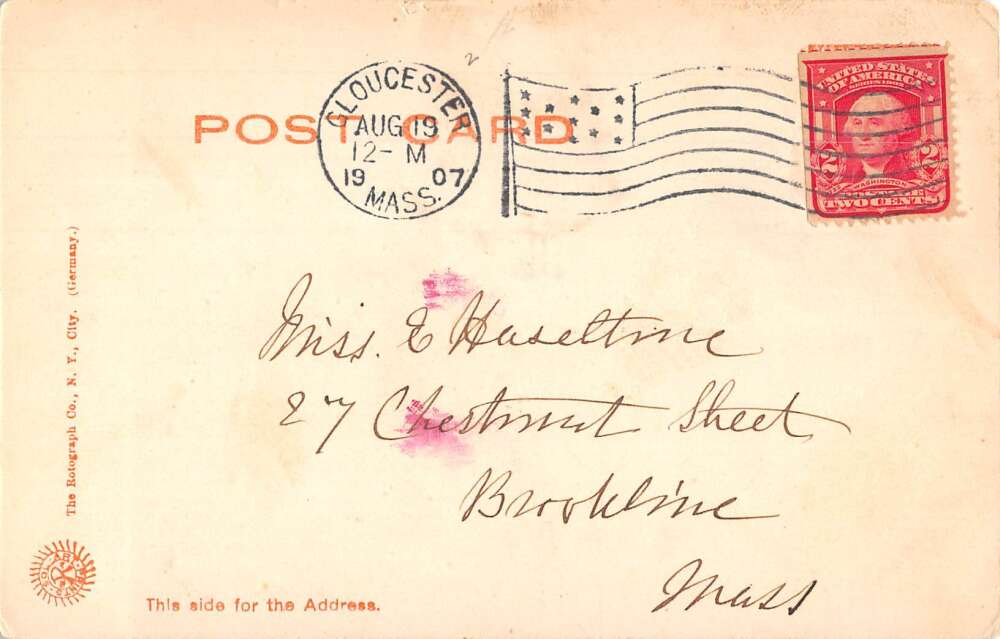 POST CARD
GLOUCESTER
AUG 19
12- M
19 07
MASS.
UNITED STATES
OF AMERICA
SERIES 1902
2 2
WASHINGTON
TWO CENTS
Miss. E Haseltine
27 Chestnut Street
Brookline
Mass
The Rotograph Co., N. Y., City. (Germany.)
This side for the Address.